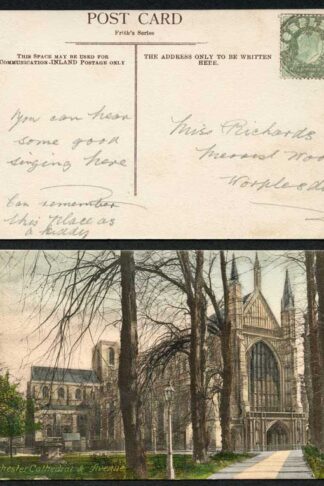 POST CARD
Frith's Series
THIS SPACE MAY BE USED FOR
COMMUNICATION-INLAND POSTAGE ONLY
THE ADDRESS ONLY TO BE WRITTEN
HERE.
You can hear
some good
singing here
Can remember
this place as
a kiddy
Miss Richards
Merrist Woo
Worplesd
chester Cathedral & Avenue